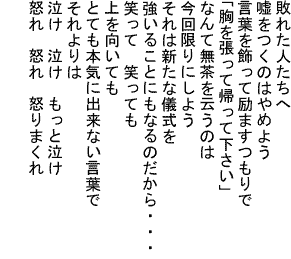 敗れた人たちへ
嘘をつくのはやめよう
言葉を飾って励ますつもりで
「胸を張って帰って下さい」
なんて無茶を云うのは
今回限りにしよう
それは新たな儀式を
強いることにもなるのだから・・・
笑って　笑っても
上を向いても
とても本気に出来ない言葉で
それよりは
泣け　泣け　もっと泣け
怒れ　怒れ　怒りまくれ